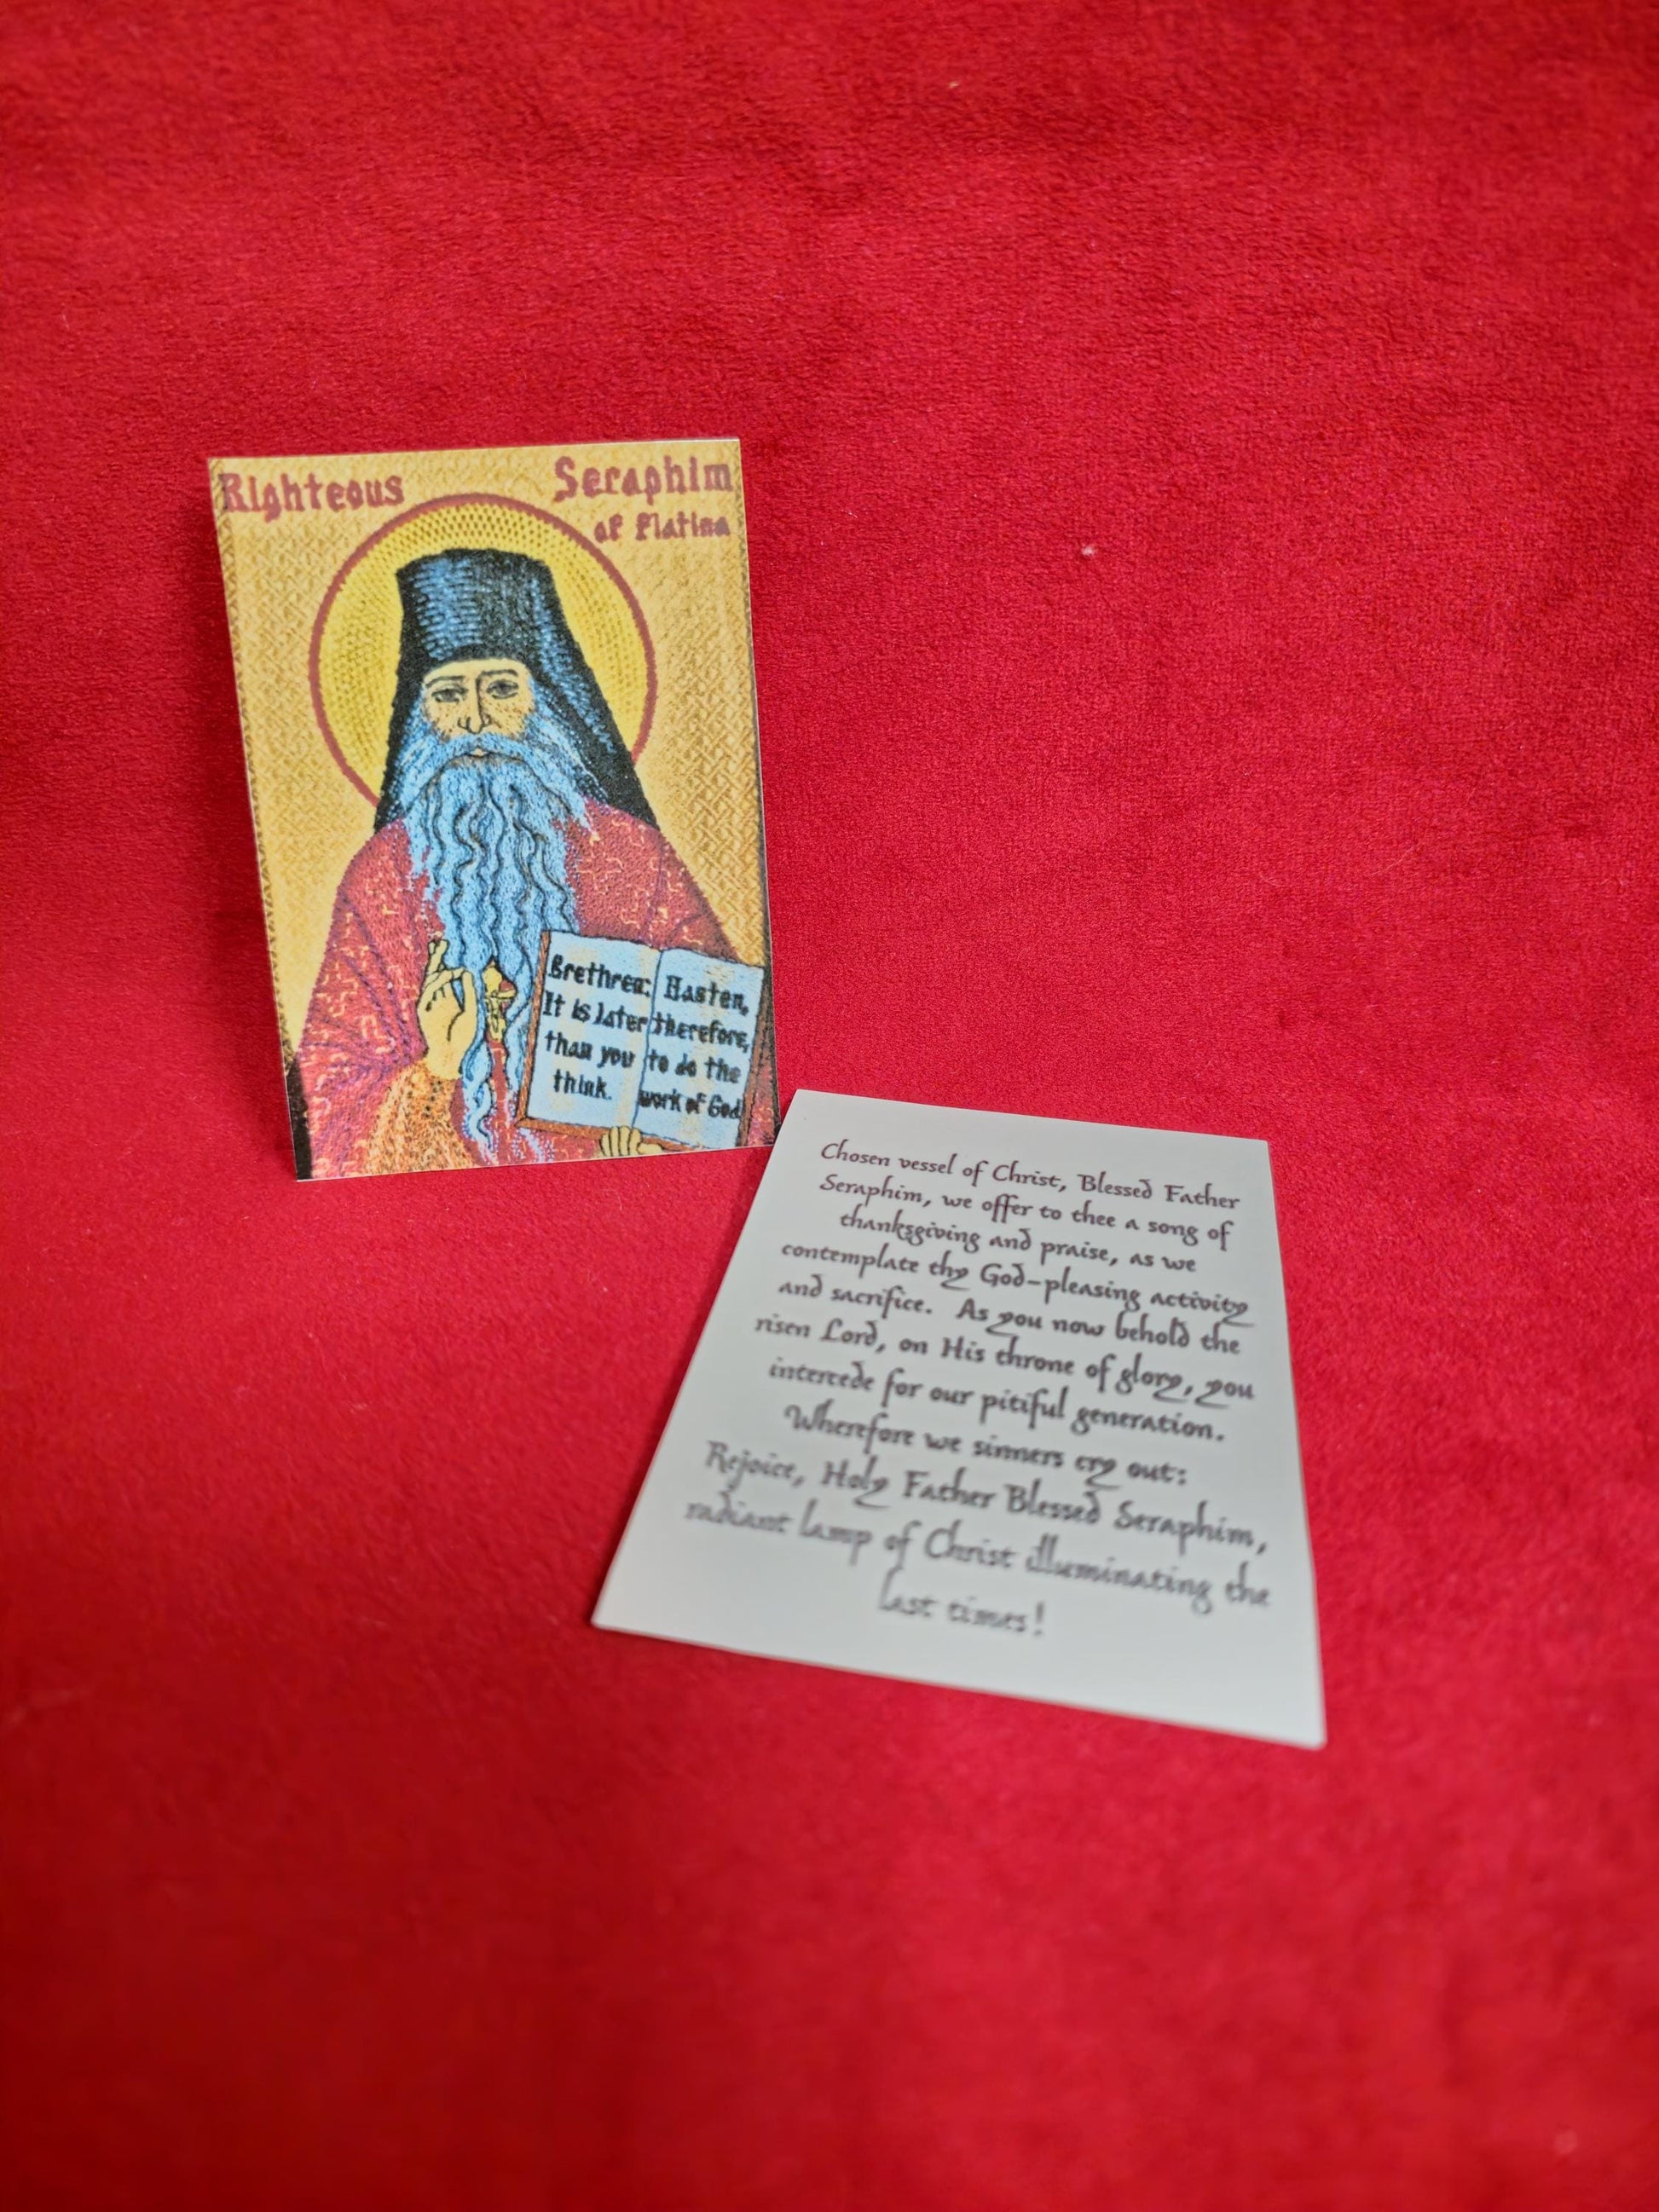 Righteous Seraphim
of Platina
Brethren:
It is later
than you
think.
Hasten,
therefore,
to do the
work of God
Chosen vessel of Christ, Blessed Father
Seraphim, we offer to thee a song of
thanksgiving and praise, as we
contemplate thy God-pleasing activity
and sacrifice. As you now behold the
risen Lord, on His throne of glory, you
intercede for our pitiful generation.
Wherefore we sinners cry out:
Rejoice, Holy Father Blessed Seraphim,
radiant lamp of Christ illuminating the
last times!